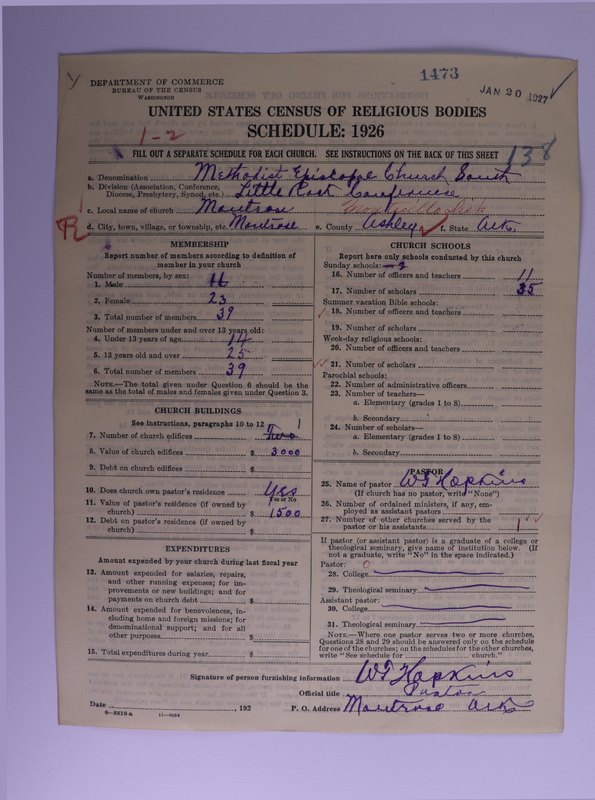 1473
JAN 20 1927
DEPARTMENT OF COMMERCE
BUREAU OF THE CENSUS
WASHINGTON
UNITED STATES CENSUS OF RELIGIOUS BODIES
SCHEDULE: 1926
1-2
FILL OUT A SEPARATE SCHEDULE FOR EACH CHURCH. SEE INSTRUCTIONS ON THE BACK OF THIS SHEET
138
a. Denomination Methodist Episcopal Church South
b. Division (Association, Conference, Diocese, Presbytery, Synod, etc.) Little Rock Conference
c. Local name of church Montrose
d. City, town, village, or township, etc. Montrose e. County Ashley f. State Ark.
R
MEMBERSHIP
Report number of members according to definition of
member in your church
Number of members, by sex:
1. Male 16
2. Female 23
3. Total number of members 39
Number of members under and over 13 years old:
4. Under 13 years of age 14
5. 13 years old and over 25
6. Total number of members 39
NOTE.—The total given under Question 6 should be the
same as the total of males and females given under Question 3.
CHURCH BUILDINGS
See instructions, paragraphs 10 to 12
1
7. Number of church edifices Two
8. Value of church edifices $ 3000
9. Debt on church edifices $
10. Does church own pastor's residence Yes
Yes or No
11. Value of pastor's residence (if owned by
church) $ 1500
12. Debt on pastor's residence (if owned by
church) $
EXPENDITURES
Amount expended by your church during last fiscal year
13. Amount expended for salaries, repairs,
and other running expenses; for im-
provements or new buildings; and for
payments on church debt $
14. Amount expended for benevolences, in-
cluding home and foreign missions; for
denominational support; and for all
other purposes $
15. Total expenditures during year $
CHURCH SCHOOLS
Report here only schools conducted by this church
Sunday schools:
16. Number of officers and teachers 11
17. Number of scholars 35
Summer vacation Bible schools:
18. Number of officers and teachers
19. Number of scholars
Week-day religious schools:
20. Number of officers and teachers
21. Number of scholars
Parochial schools:
22. Number of administrative officers
23. Number of teachers—
a. Elementary (grades 1 to 8)
b. Secondary
24. Number of scholars—
a. Elementary (grades 1 to 8)
b. Secondary
PASTOR
25. Name of pastor WT Hopkins
(If church has no pastor, write "None")
26. Number of ordained ministers, if any, em-
ployed as assistant pastors
27. Number of other churches served by the
pastor or his assistants 1
If pastor (or assistant pastor) is a graduate of a college or
theological seminary, give name of institution below. (If
not a graduate, write "No" in the space indicated.)
Pastor:
28. College
29. Theological seminary
Assistant pastor:
30. College
31. Theological seminary
NOTE.—Where one pastor serves two or more churches,
Questions 28 and 29 should be answered only on the schedule
for one of the churches; on the schedules for the other churches,
write "See schedule for church."
Signature of person furnishing information WT Hopkins
Official title Pastor
Date , 192 P. O. Address Montrose Ark
8-5518a 11-9034